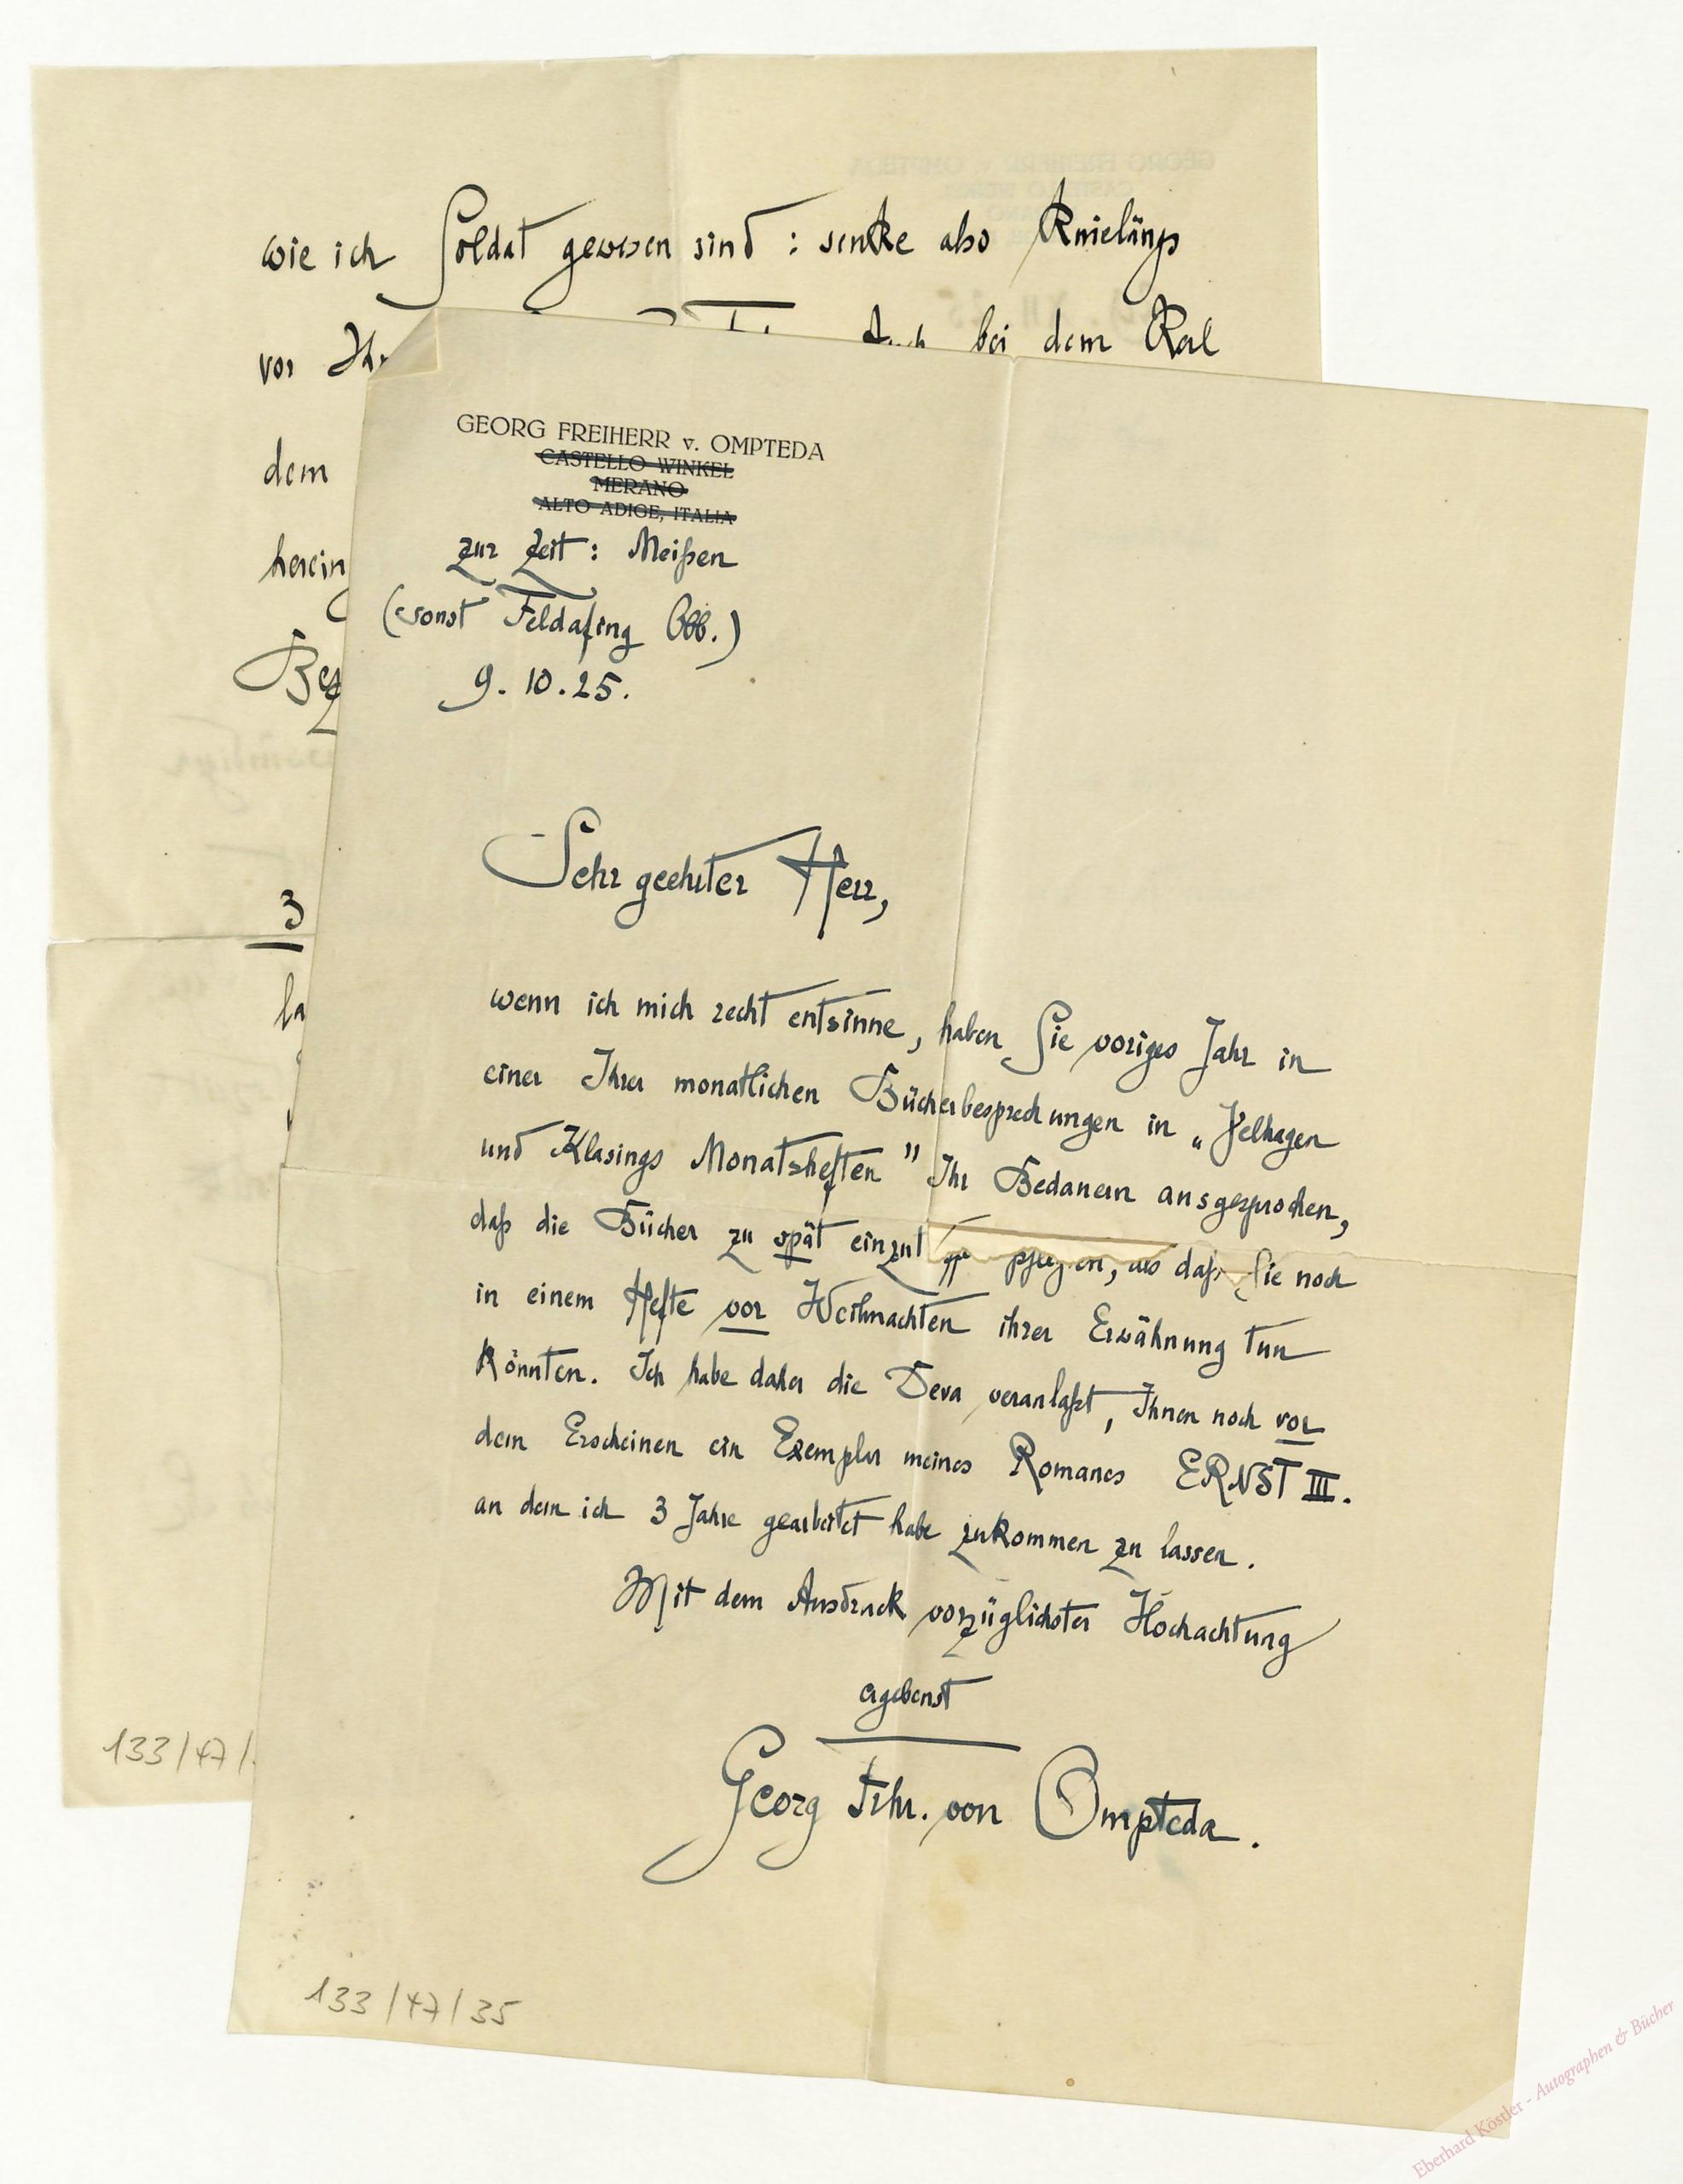 wie ich Soldat gewesen sind: senke also Knielängs
vor
bei dem
dem
herein
Bez
3
la
133/47/
GEORG FREIHERR v. OMPTEDA
CASTELLO WINKEL
MERANO
ALTO ADIGE, ITALIA
zur Zeit: Meißen
(sonst Feldafing Obb.)
9.10.25.
Sehr geehrter Herr,
wenn ich mich recht entsinne, haben Sie voriges Jahr in
einer Ihrer monatlichen Bücherbesprechungen in „Velhagen
und Klasings Monatsheften" Ihr Bedauern ausgesprochen,
daß die Bücher zu spät pflegen, als daß Sie noch
in einem Hefte vor Weihnachten ihrer Erwähnung tun
könnten. Ich habe daher die Deva veranlaßt, Ihnen noch vor
dem Erscheinen ein Exemplar meines Romanes ERNST III.
an dem ich 3 Jahre gearbeitet habe zukommen zu lassen.
Mit dem Ausdruck vorzüglichster Hochachtung
ergebenst
Georg Frhr. von Ompteda.
133/47/35
Eberhard Köstler - Autographen & Bücher